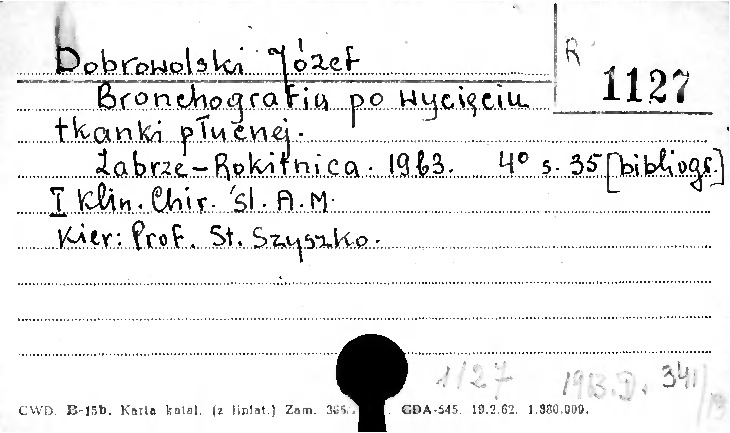 Dobrowolski Józef
R 1127
Bronchografia po wycięciu
tkanki płucnej.
Zabrze-Rokitnica. 1963. 4° s. 35 [bibliogr.]
I Klin. Chir. Śl. A.M.
Kier: Prof. St. Szyszko.
1127 1963.D. 341/
CWD. B-15b. Karta katal. (z liniat.) Zam. GDA-545. 19.2.62. 1.980.000.